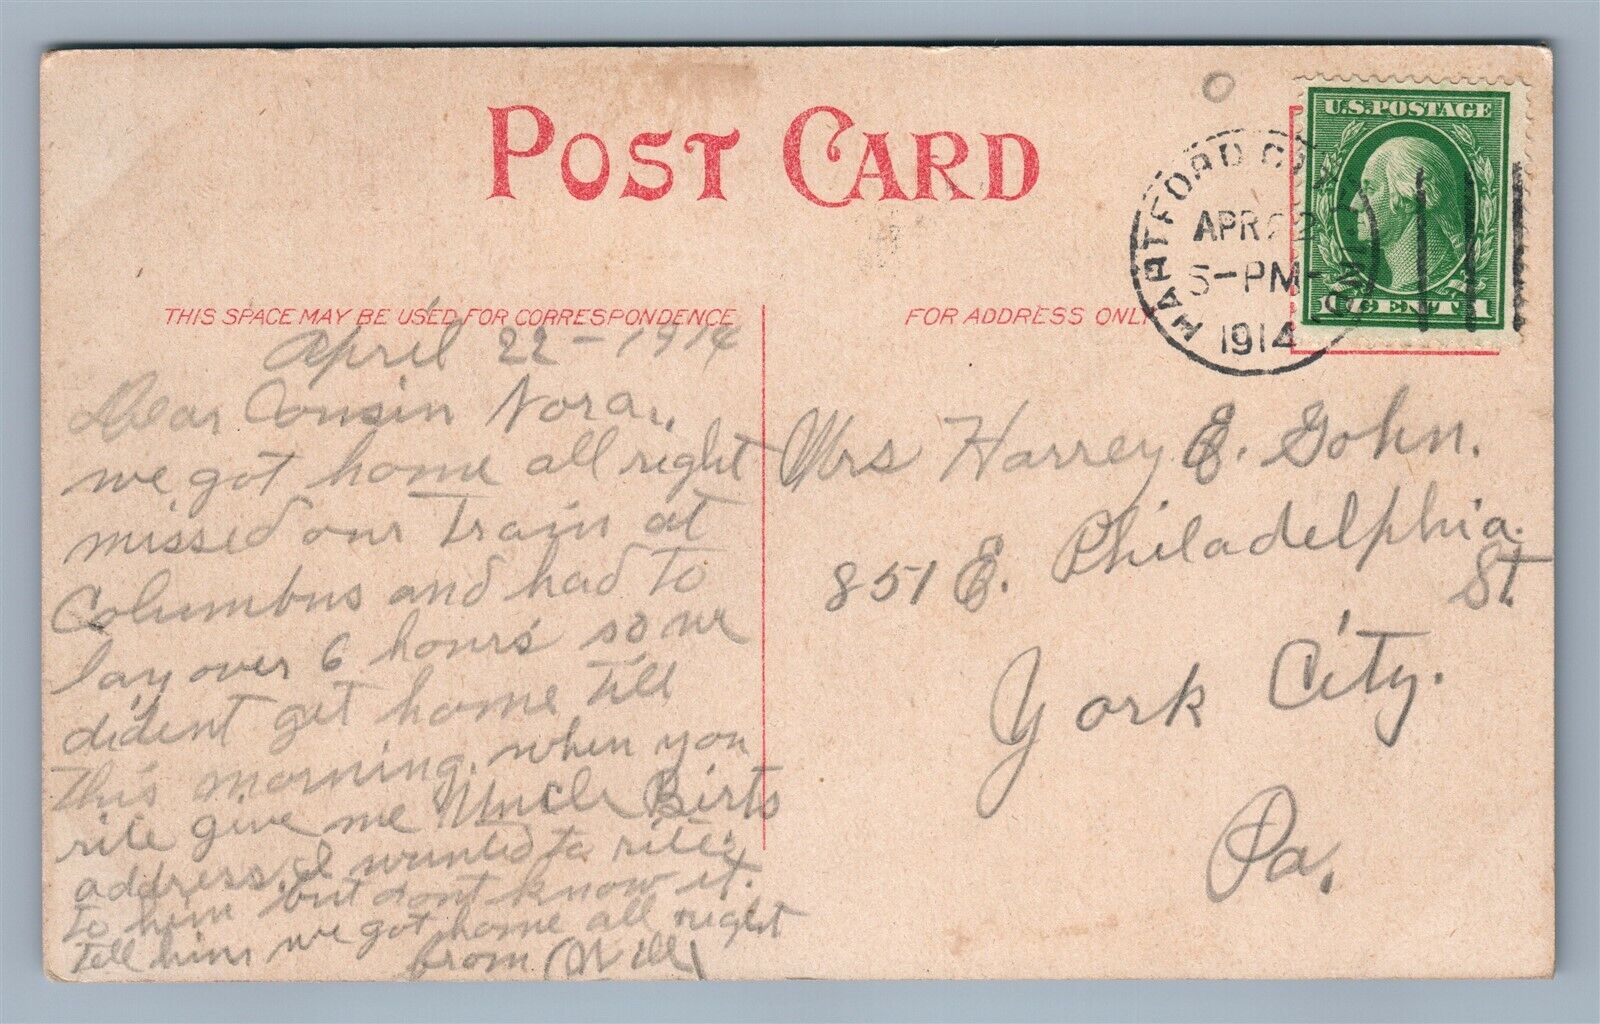 POST CARD
THIS SPACE MAY BE USED FOR CORRESPONDENCE
FOR ADDRESS ONLY
HARTFORD CITY IND.
APR 22
5-PM
1914
U.S. POSTAGE
1 CENT 1
April 22-1914
Dear Cousin Nora,
we got home all right
missed our Train at
Columbus and had to
lay over 6 hours so we
dident get home till
this morning. when you
rite give me Uncle Birts
address. I wanted to rite
to him but dont know it.
tell him we got home all right
from Will
Mrs Harrey E. Gohn.
851 E. Philadelphia
St
York City.
Pa.